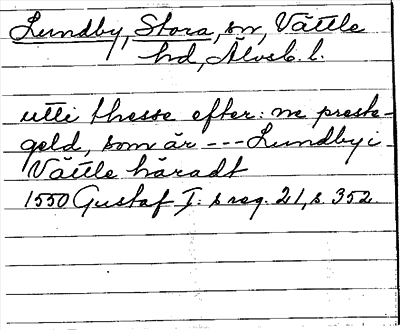 Lundby, Stora, sn, Vättle
hd, Älvsb. l.
utti thesse efter: ne preste-
geld, som är --- Lundby i
Vättle häradt
1550 Gustaf I: s reg. 21, s. 352.